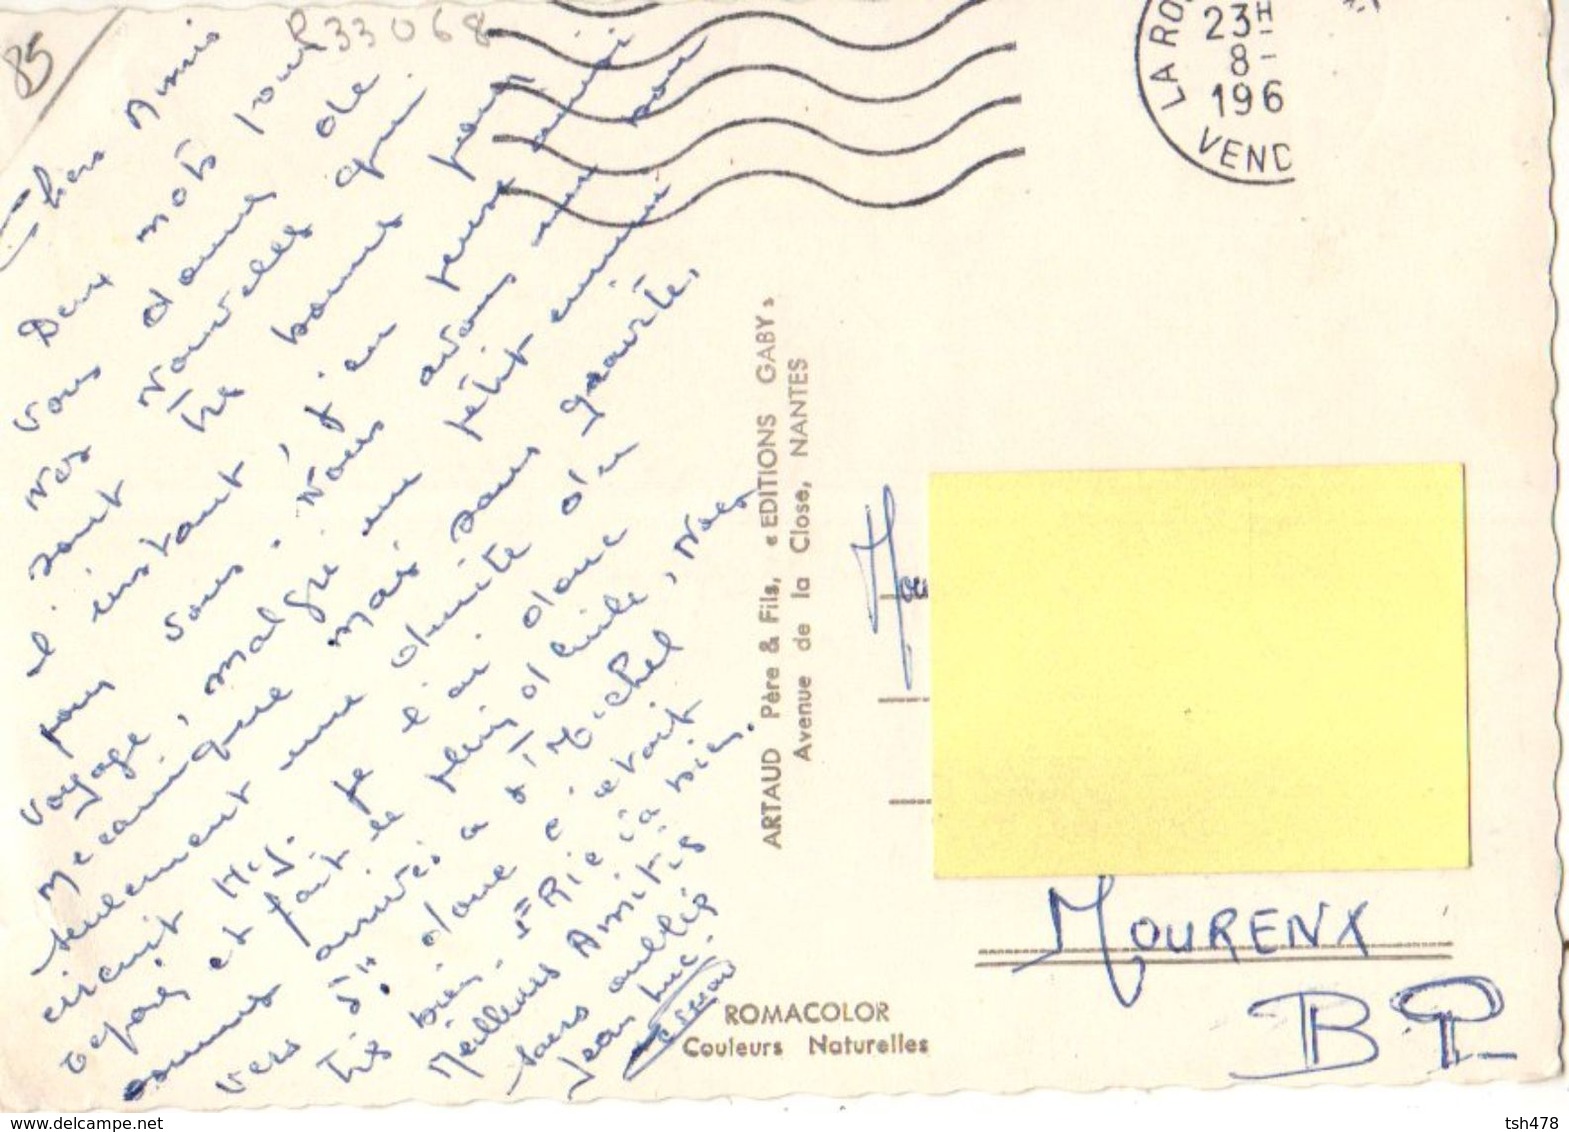 85
R33068
Chers Amis
Deux mots pour
vous donner de
nos nouvelles qui
sont très bonnes pour
l'instant, j'en pense ainsi
pour vous. Nous avons eu un bon
voyage, malgré un petit ennui
mécanique mais sans gravité,
seulement une durite d'un
circuit Hyd. je l'ai donc
réparé et fait le plein d'huile, nous
sommes arrivés à St Michel
vers 5H donc c'était
très bien. Ici ça bien.
Meilleures Amitiés
sans oublier
Jean Luc.
LA RO
23H
8-
196
VEND
ARTAUD Père & Fils, « EDITIONS GABY »
Avenue de la Close, NANTES
ROMACOLOR
Couleurs Naturelles
MOURENX
BP
www.delcampe.net
tsh478